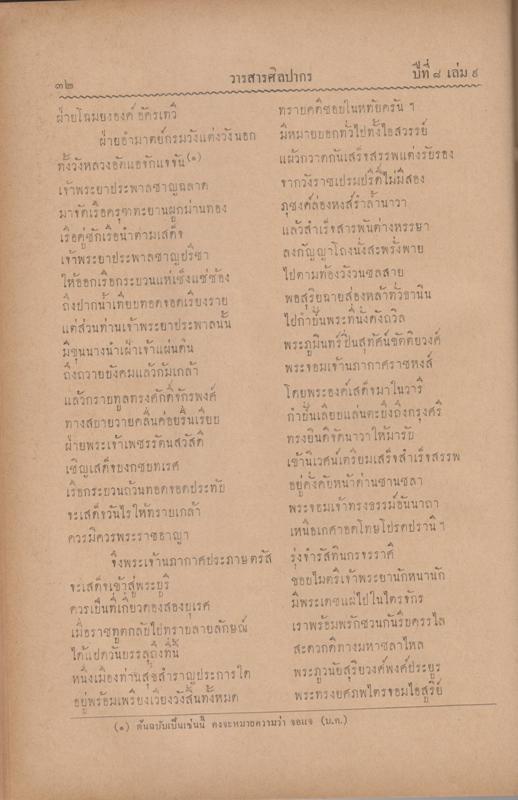 ๓๒
วารสารศิลปากร
ปีที่ ๘ เล่ม ๙
ฝ่ายโฉมยงองค์อัครเทวี
ทรายคดีชอบในหทัยครัน ฯ
ฝ่ายอำมาตย์กรมวังแต่งวังนอก
มีหมายบอกทั่วไปทั้งไอสวรรย์
ทั้งวังหลวงอัดแอจักแจจัน(๑)
แผ้วกวาดกันเสร็จสรรพแต่งรับรอง
เจ้าพระยาประพาลชาญฉลาด
จากวังราชเปรมปรีดิ์ไม่มีสอง
มาจัดเรือครุฑทะยานผูกม่านทอง
ภุชงค์ล่องหงส์ร่ำล้ำนาวา
เรือคู่ชักเรือนำตามเสด็จ
แล้วสำเร็จสารพันต่างหรรษา
เจ้าพระยาประพาลชาญปรีชา
ลงกัญญาโถงนั่งสะพรั่งพาย
ให้ออกเรือกระบวนแห่เซ็งแซ่ซ้อง
ไปตามท้องวังวนชลสาย
ถึงปากน้ำเทียบทอดจอดเรียงราย
พอสุริยฉายส่องหล้าทั่วธานิน
แต่ส่วนท่านเจ้าพระยาประพาลนั้น
ไปกำปั่นพระที่นั่งดังถวิล
มีขุนนางนำเฝ้าเจ้าแผ่นดิน
พระภูมินทร์ปิ่นสุทัศน์ขัตติยวงศ์
ถึงถวายบังคมแล้วก้มเกล้า
พระจอมเจ้านภากาศราชหงส์
แล้วกราบทูลทรงศักดิ์จักรพงศ์
โดยพระองค์เสด็จมาในวาริ
ทางสบายวายคลื่นค่อยรื่นเรียบ
กำปั่นเลียบแล่นตะบึงถึงกรุงศรี
ฝ่ายพระเจ้าเพชรรัตนสวัสดิ์
ทรงยินดีจัดนาวาให้มารับ
เชิญเสด็จยงกชยทเรศ
เข้านิเวศน์เตรียมเสร็จสำเร็จสรรพ
เรือกระบวนถ้วนทอดจอดประทับ
อยู่คั่งคับหน้าด่านชานชลา
จะเสด็จวันไรให้ทรายเกล้า
พระจอมเจ้าทรงธรรม์อันนาถา
ควรมิควรพระราชอาญา
เหนือเกศาอดโทษโปรดปรานี ฯ
จึงพระเจ้านภากาศประภาษตรัส
รุ่งจำรัสทินกรจรรศรี
จะเสด็จเข้าสู่พระบุรี
ชอบไมตรีเจ้าพระยานักหนานัก
ควรเป็นที่เกี่ยวดองสองบุเรศ
มีพระเดชแผ่ไปในไตรจักร
เมื่อราชทูตกลับไปทรายลายลักษณ์
เราพร้อมพรักชวนกันรีบครรไล
ได้แปดวันบรรลุถึงที่นี้
สะดวกดีทางมหาชลาไหล
หนึ่งเมืองท่านสุขสำราญประการใด
พระภูวนัยสุริยวงศ์พงศ์ประยูร
อยู่พร้อมเพรียงเวียงวังสิ้นทั้งหมด
พระทรงยศภพไตรจอมไอสูริย์
(๑) ต้นฉบับเป็นเช่นนี้ คงจะหมายความว่า จอแจ (บ.ก.)